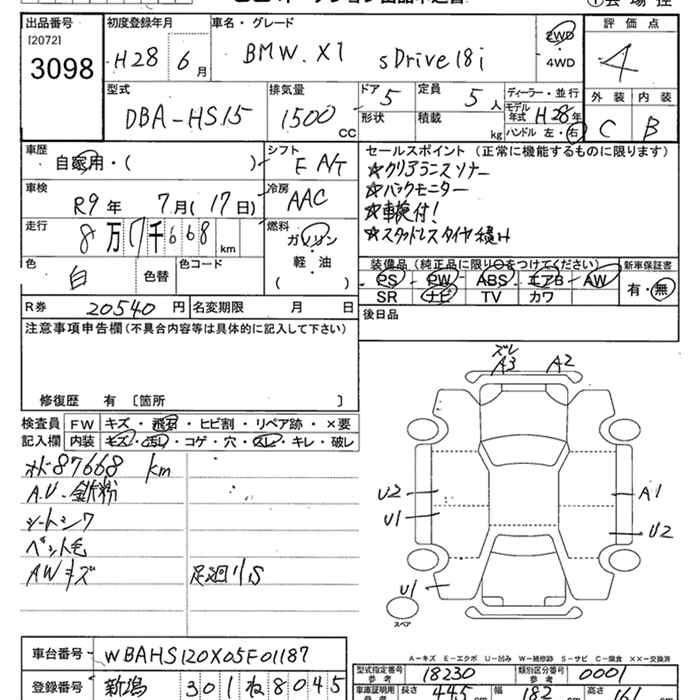 出品番号 初度登録年月 車名・グレード 評価点
[2072]
3098 H28 6月 BMW. X1 sDrive18i 2WD 4WD 4
型式 排気量 ドア 定員 ディーラー・並行 外装 内装
DBA-HS15 1500 CC 5 5人 モデル年式 H28年 C B
形状 積載 kg ハンドル 左・右
車歴 自家用・( ) シフト F A/T
セールスポイント(正常に機能するものに限ります)
☆クリアランスソナー
☆バックモニター
☆車検付!
☆スタッドレスタイヤ積み
車検 R9年 7月(17日) 冷房 AAC
走行 8万7千668km 燃料 ガソリン・軽・油 ( )
色 白 色替 色コード
装備品(純正品に限り○をつけてください) 新車保証書
PS PW ABS エアB AW 有・無
SR ナビ TV カワ
R券 20540円 名変期限 月 日 後日品
注意事項申告欄(不具合内容等は具体的に記入して下さい)
修復歴 有 〔箇所 〕
検査員 FW キズ・飛石・ヒビ割・リペア跡・×要
記入欄 内装 キズ・汚れ・コゲ・穴・スレ・キレ・破レ
87668 km
A.U-鉄粉
シートシワ
ペット毛
AWキズ 足廻りS
ズレ
A3 A2
U2 A1
U1 U2
U1
スペア
車台番号 WBAHS120X05F01187
登録番号 新潟 301ね8045
A-キズ E-エクボ U-凹み W-補修跡 S-サビ C-腐食 ××-交換済
型式指定番号 参考 18230 類別区分番号 参考 0001
車庫証明用 参考 長さ 445 幅 182 高さ 161